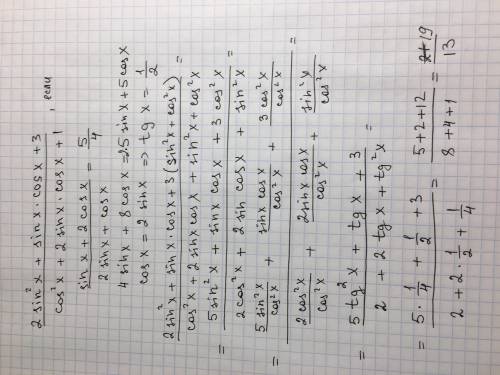 2 sin²x + sinx · cosx + 3
cos²x + 2 sinx · cosx + 1 , если
sinx + 2 cosx = 5
2 sinx + cosx 4
4 sinx + 8 cosx = 25 sinx + 5 cosx
cosx = 2 sinx => tg x = 1/2
2 sin²x + sinx · cosx + 3 (sin²x + cos²x) =
cos²x + 2 sinx cosx + sin²x + cos²x
= 5 sin²x + sinx cosx + 3 cos²x =
2 cos²x + 2 sin cosx + sin²x
5 sin²x/cos²x + sinx cosx/cos²x + 3 cos²x/cos²x =
2cos²x/cos²x + 2sinx cosx/cos²x + sin²x/cos²x
= 5 tg²x + tg x + 3 =
2 + 2 tg x + tg²x
= 5 · 1/4 + 1/2 + 3 = 5+2+12 = 19
2 + 2 · 1/2 + 1/4 8+4+1 13